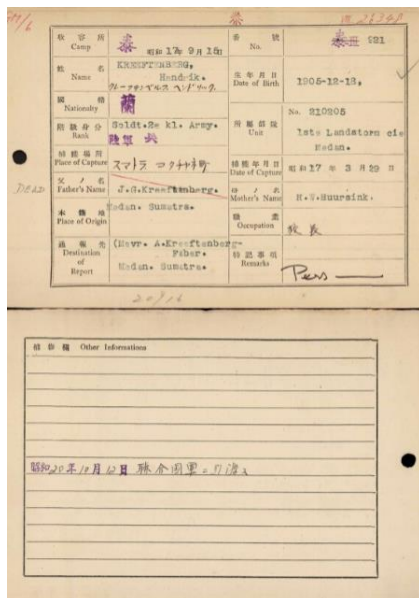 泰
收容所 Camp 泰 昭和17年9月15日
番號 No. 泰III 921
姓名 Name KREEFTENBERG, Hendrik.
生年月日 Date of Birth 1905-12-18,
國籍 Nationality 蘭
階級身分 Rank Soldt.2e kl. Army.
所屬部隊 Unit No. 210205 1ste Landstorm cie Medan.
捕獲場所 Place of Capture スマトラ コタチャネ町
捕獲年月日 Date of Capture 昭和17年3月29日
DEAD
父ノ名 Father's Name J.G.Kreeftenberg.
母ノ名 Mother's Name H.V.Huursink.
本籍地 Place of Origin Medan. Sumatra.
職業 Occupation 校長
通報先 Destination of Report (Mevr. A.Kreeftenberg-Faber. Medan. Sumatra.
特記事項 Remarks
Other Informations
昭和20年10月12日 聯合国軍ニ引渡ス